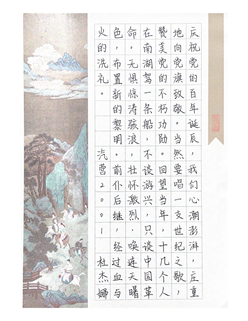 庆祝党的百年诞辰，我们心潮澎湃，庄重
地向党旗致敬。当然要唱一支世纪之歌，
赞美党的不朽功勋。回望当年，十几个人
在南湖驾一条船，不谈游兴，只谈中国革
命，无惧惊涛骇浪，壮怀激烈，唤连天曙
色，布置新的黎明。前仆后继，经过血与
火的洗礼。 汽营2001 杜杰娜